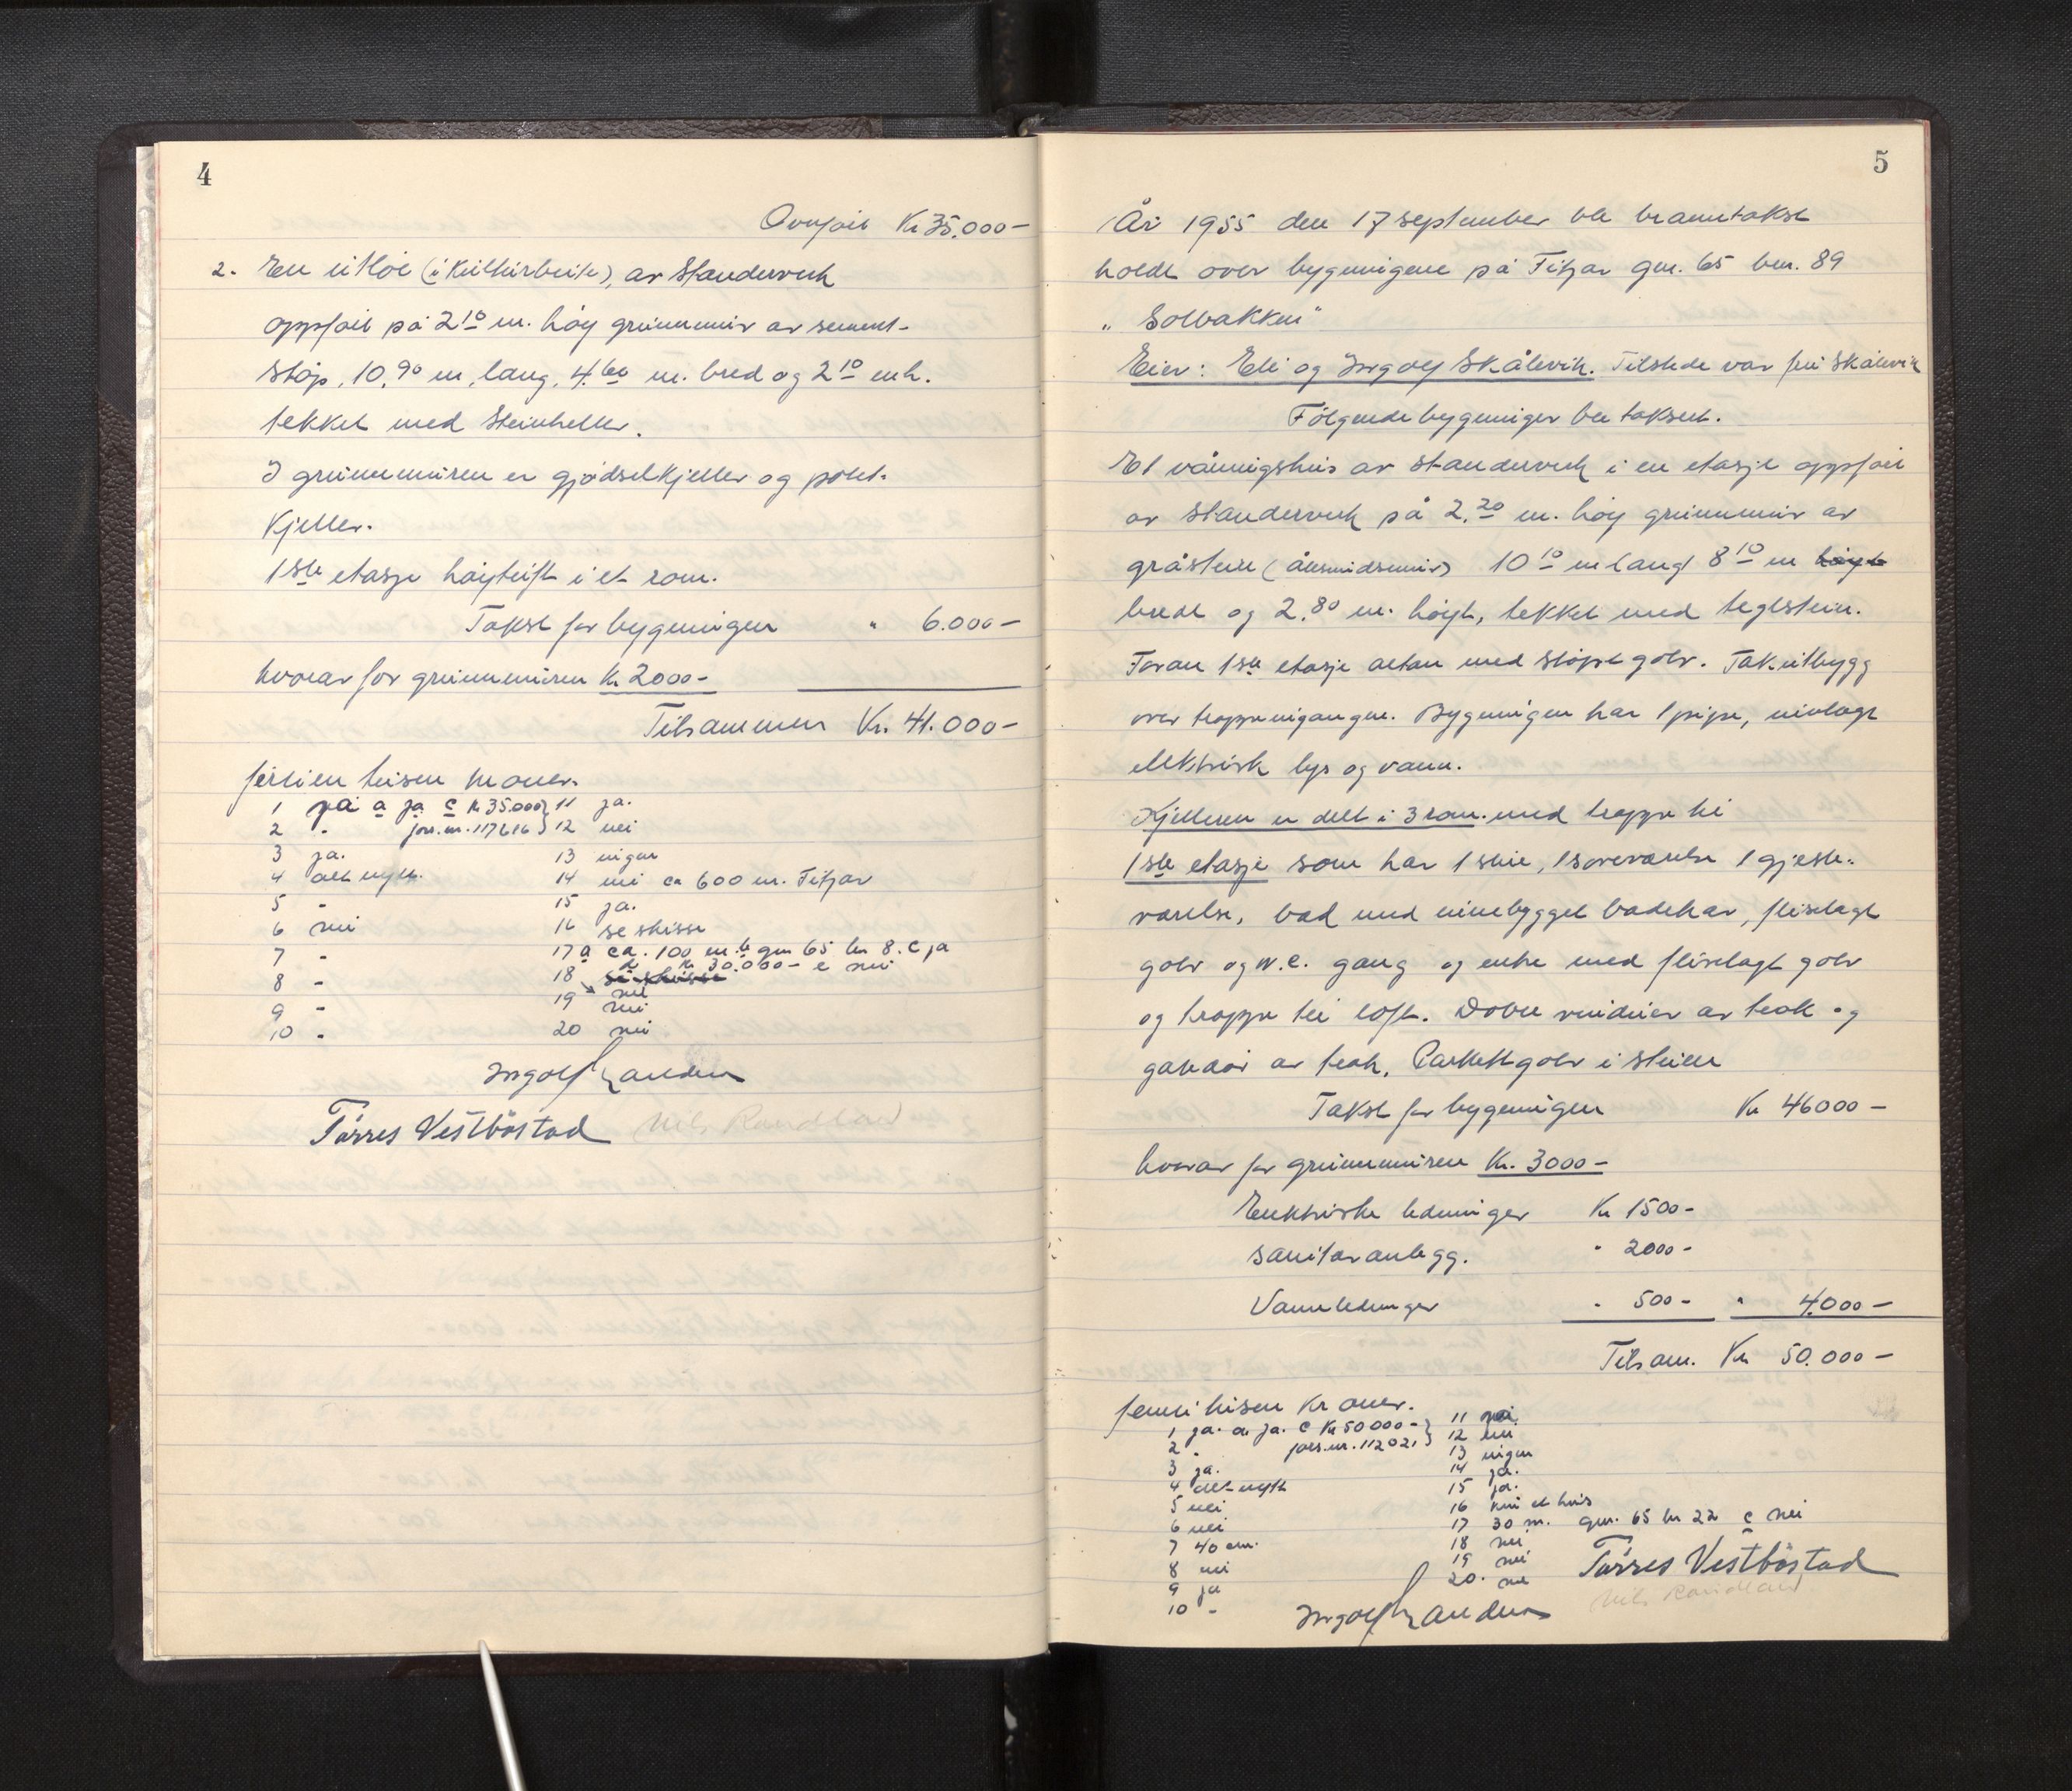 4
Overført Kr 35.000 —
2. En utløe (i Kulturbeite), av Standerverk
oppført på 2 10 m. høy grunnmur av sement-
støp, 10,90 m, lang, 4.60 m. bred og 2 10 m h.
tekket med Steinheller.
I grunnmuren er gjødselkjeller og potet-
Kjeller.
1ste etasje høytrist i et rom.
Takst for bygningen " 6.000 —
hvorav for grunnmuren Kr 2000 —
Tilsammen Kr. 41.000 —
førtien tusen kroner.
1 ja a ja c Kr 35.000 } 11 ja.
2 " jorr.nr. 117616 } 12 nei
3 ja. 13 ingen
4 alt nytt. 14 nei ca 600 m. Fitjar
5 " 15 ja.
6 nei 16 se skisse
7 " 17 a ca. 100 m. b gnr 65 bn 8. c ja
d Kr 30.000 — e nei
8 " 18 se skisse nei
9 " 19 nei
10 " 20 nei
Ingolf Landen
Tørres Vestbøstad Nils Randland
5
År 1955 den 17 september ble branntakst
holdt over bygningene på Fitjar gnr. 65 bnr. 89
" Solbakken"
Eier: Eli og Ingolf Skålevik. Tilstede var fru Skålevik
Følgende bygninger ble taksert.
Et våningshus av standerverk i en etasje oppført
av standerverk på 2.20 m. høy grunnmur av
gråstein ( ) 10 10 m langt 8 10 m høyt
bredt og 2.80 m. høyt, tekket med teglstein.
Foran 1ste etasje altan med støpt golv. Takutbygg
over trappeingangen. Bygningen har 1 pipe, innlagt
elektrisk lys og vann.
Kjelleren er delt i 3 rom. med trapp til
1ste etasje som har 1 stue, 1 soveværelse 1 gjeste-
værelse, bad med innebygget badekar, fliselagt
golv og w.c. gang og entre med fliselagt golv
og trapp til loft. Doble vinduer av teak og
gatedør av teak. Parkettgolv i stuen
Takst for bygningen Kr 46000 —
hvorav for grunnmuren Kr. 3000 —
Elektriske ledninger Kr 1500 -
sanitæranlegg. " 2000 -
Vannledninger " 500 - " 4.000 —
Tilsam. Kr 50.000 —
femti tusen kroner.
1 ja. a ja. c Kr 50000 - } 11 nei
2 " jorr.nr. 112021 } 12 nei
3 ja. 13 ingen
4 alt nytt 14 ja.
5 nei 15 ja.
6 nei 16 kun et hus
7 40 cm. 17 30 m. gnr. 65 bn 22 c nei
8 nei 18 nei
9 ja 19 nei
10 " 20. nei
Tørres Vestbøstad
Ingolf Landen Nils Randland